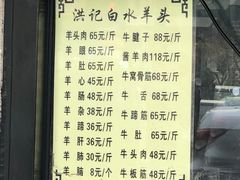 洪记白水羊头
羊头肉65元/斤 牛腱子88元/斤
羊眼60元/斤 酱羊肉118元/斤
羊肚65元/斤 牛窝骨筋68元/斤
羊心45元/斤 牛舌68元/斤
羊肠48元/斤 牛蹄筋65元/斤
羊杂38元/斤 牛肚65元/斤
羊蹄36元/斤 牛头肉48元/斤
羊肝36元/斤 牛板筋48元/斤
羊肺30元/斤
羊脑8元/个